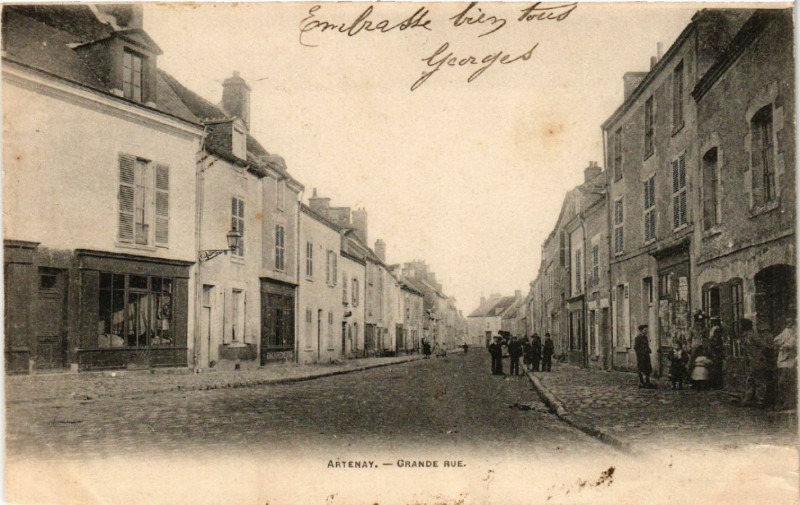 Embrasse bien tous
Georges
ARTENAY. — GRANDE RUE.